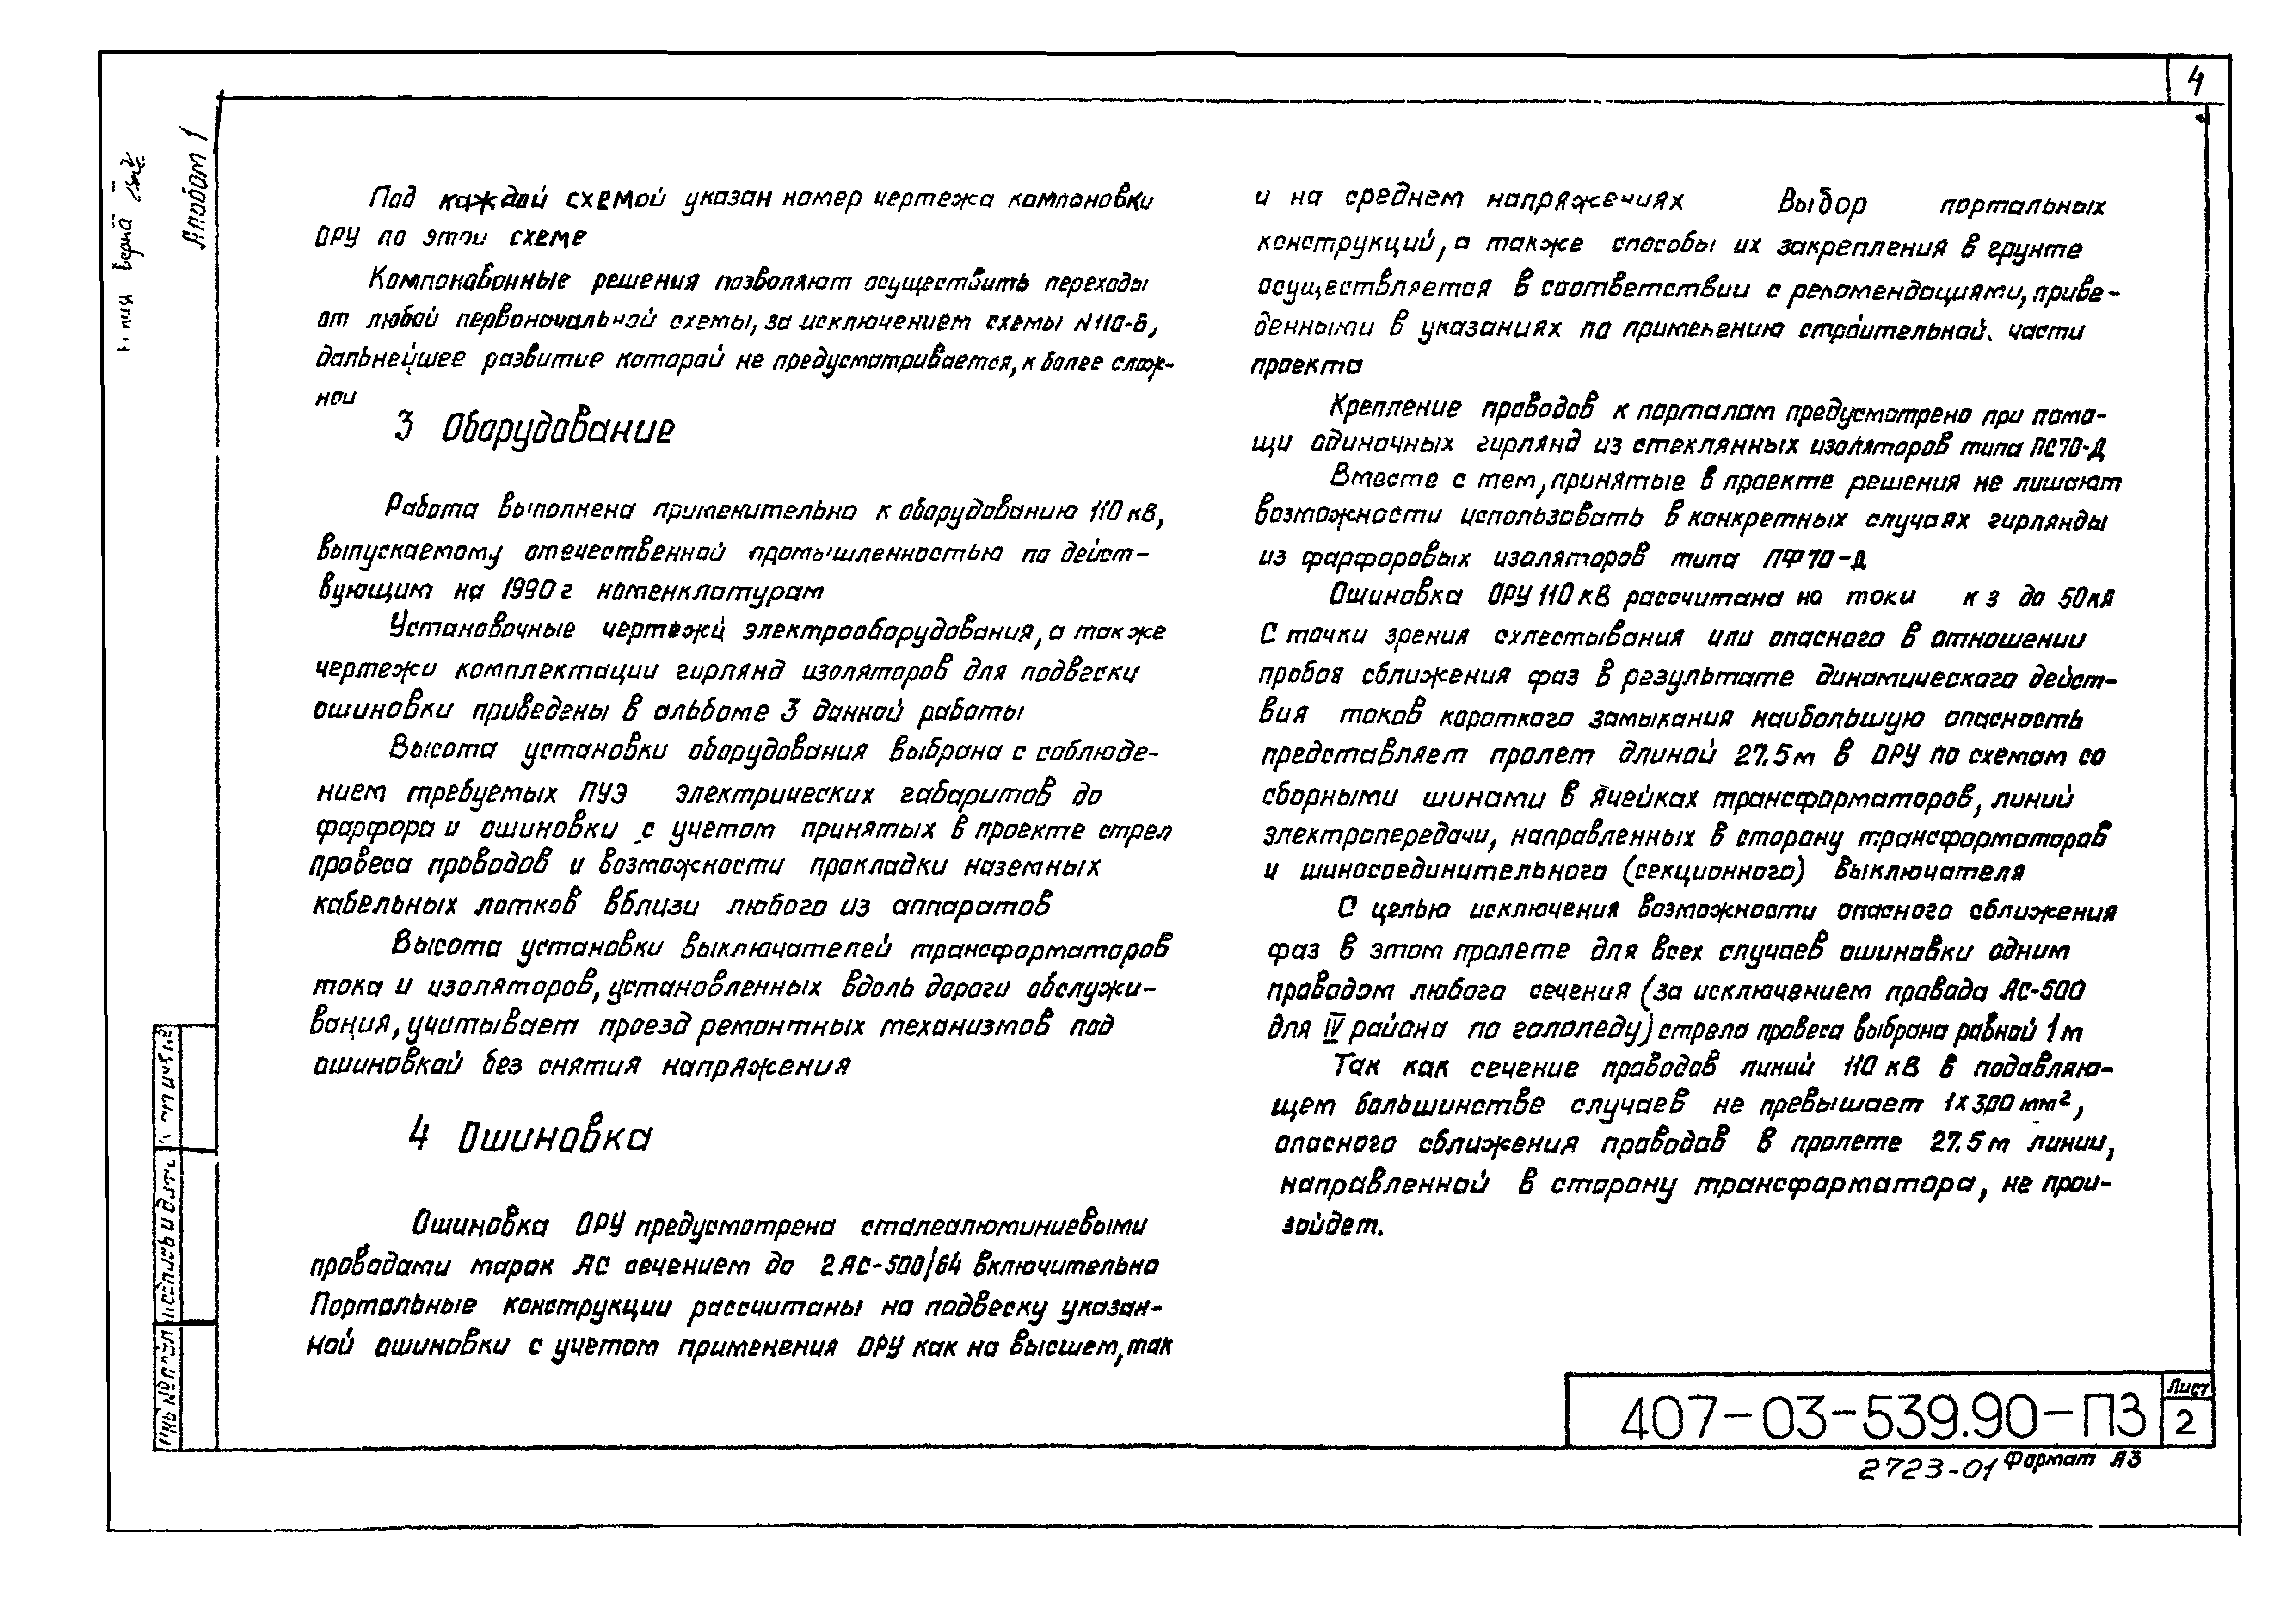 4
Альбом 1
верна
Под каждой схемой указан номер чертежа компановки
ОРУ по этой схеме
Компановонные решения позволяют осуществить переходы
от любой первоначальной схемы, за исключением схемы N110-6,
дальнейшее развитие которой не предусматривается, к более слож-
ной
3 Оборудование
Работа выполнена применительно к оборудованию 110 кВ,
выпускаемому отечественной промышленностью по дейст-
вующим на 1990 г номенклатурам
Установочные чертежи электрооборудования, а также
чертежи комплектации гирлянд изоляторов для подвески
ошиновки приведены в альбоме 3 данной работы
Высота установки оборудования выбрана с соблюде-
нием требуемых ПУЭ электрических габаритов до
фарфора и ошиновки с учетом принятых в проекте стрел
провеса проводов и возможности прокладки наземных
кабельных лотков вблизи любого из аппаратов
Высота установки выключателей трансформаторов
тока и изоляторов, установленных вдоль дороги обслужи-
вания, учитывает проезд ремонтных механизмов под
ошиновкой без снятия напряжения
4 Ошиновка
Ошиновка ОРУ предусмотрена сталеалюминиевыми
проводами марок АС сечением до 2АС-500/64 включительно
Портальные конструкции рассчитаны на подвеску указан-
ной ошиновки с учетом применения ОРУ как на высшем, так
и на среднем напряжениях Выбор портальных
конструкций, а также способы их закрепления в грунте
осуществляется в соответствии с рекомендациями, приве-
денными в указаниях по применению строительной. части
проекта
Крепление проводов к порталам предусмотрено при помо-
щи одиночных гирлянд из стеклянных изоляторов типа ПС70-Д
Вместе с тем, принятые в проекте решения не лишают
возможности использовать в конкретных случаях гирлянды
из фарфоровых изоляторов типа ПФ70-Д
Ошиновка ОРУ 110 кВ рассчитана на токи к з до 50кА
С точки зрения схлестывания или опасного в отношении
пробоя сближения фаз в результате динамического дейст-
вия токов короткого замыкания наибольшую опасность
представляет пролет длиной 27.5 м в ОРУ по схемам со
сборными шинами в ячейках трансформаторов, линий
электропередачи, направленных в сторону трансформаторов
и шиносоединительного (секционного) выключателя
С целью исключения возможности опасного сближения
фаз в этом пролете для всех случаев ошиновки одним
проводом любого сечения (за исключением провода АС-500
для IV района по гололеду) стрела провеса выбрана равной 1 м
Так как сечение проводов линий 110 кВ в подавляю-
щем большинстве случаев не превышает 1х300 мм²,
опасного сближения проводов в пролете 27.5 м линии,
направленной в сторону трансформатора, не прои-
зойдет.
Инв № подл
Подпись и дата
407-03-539.90-ПЗ
Лист
2
2723-01
Формат А3